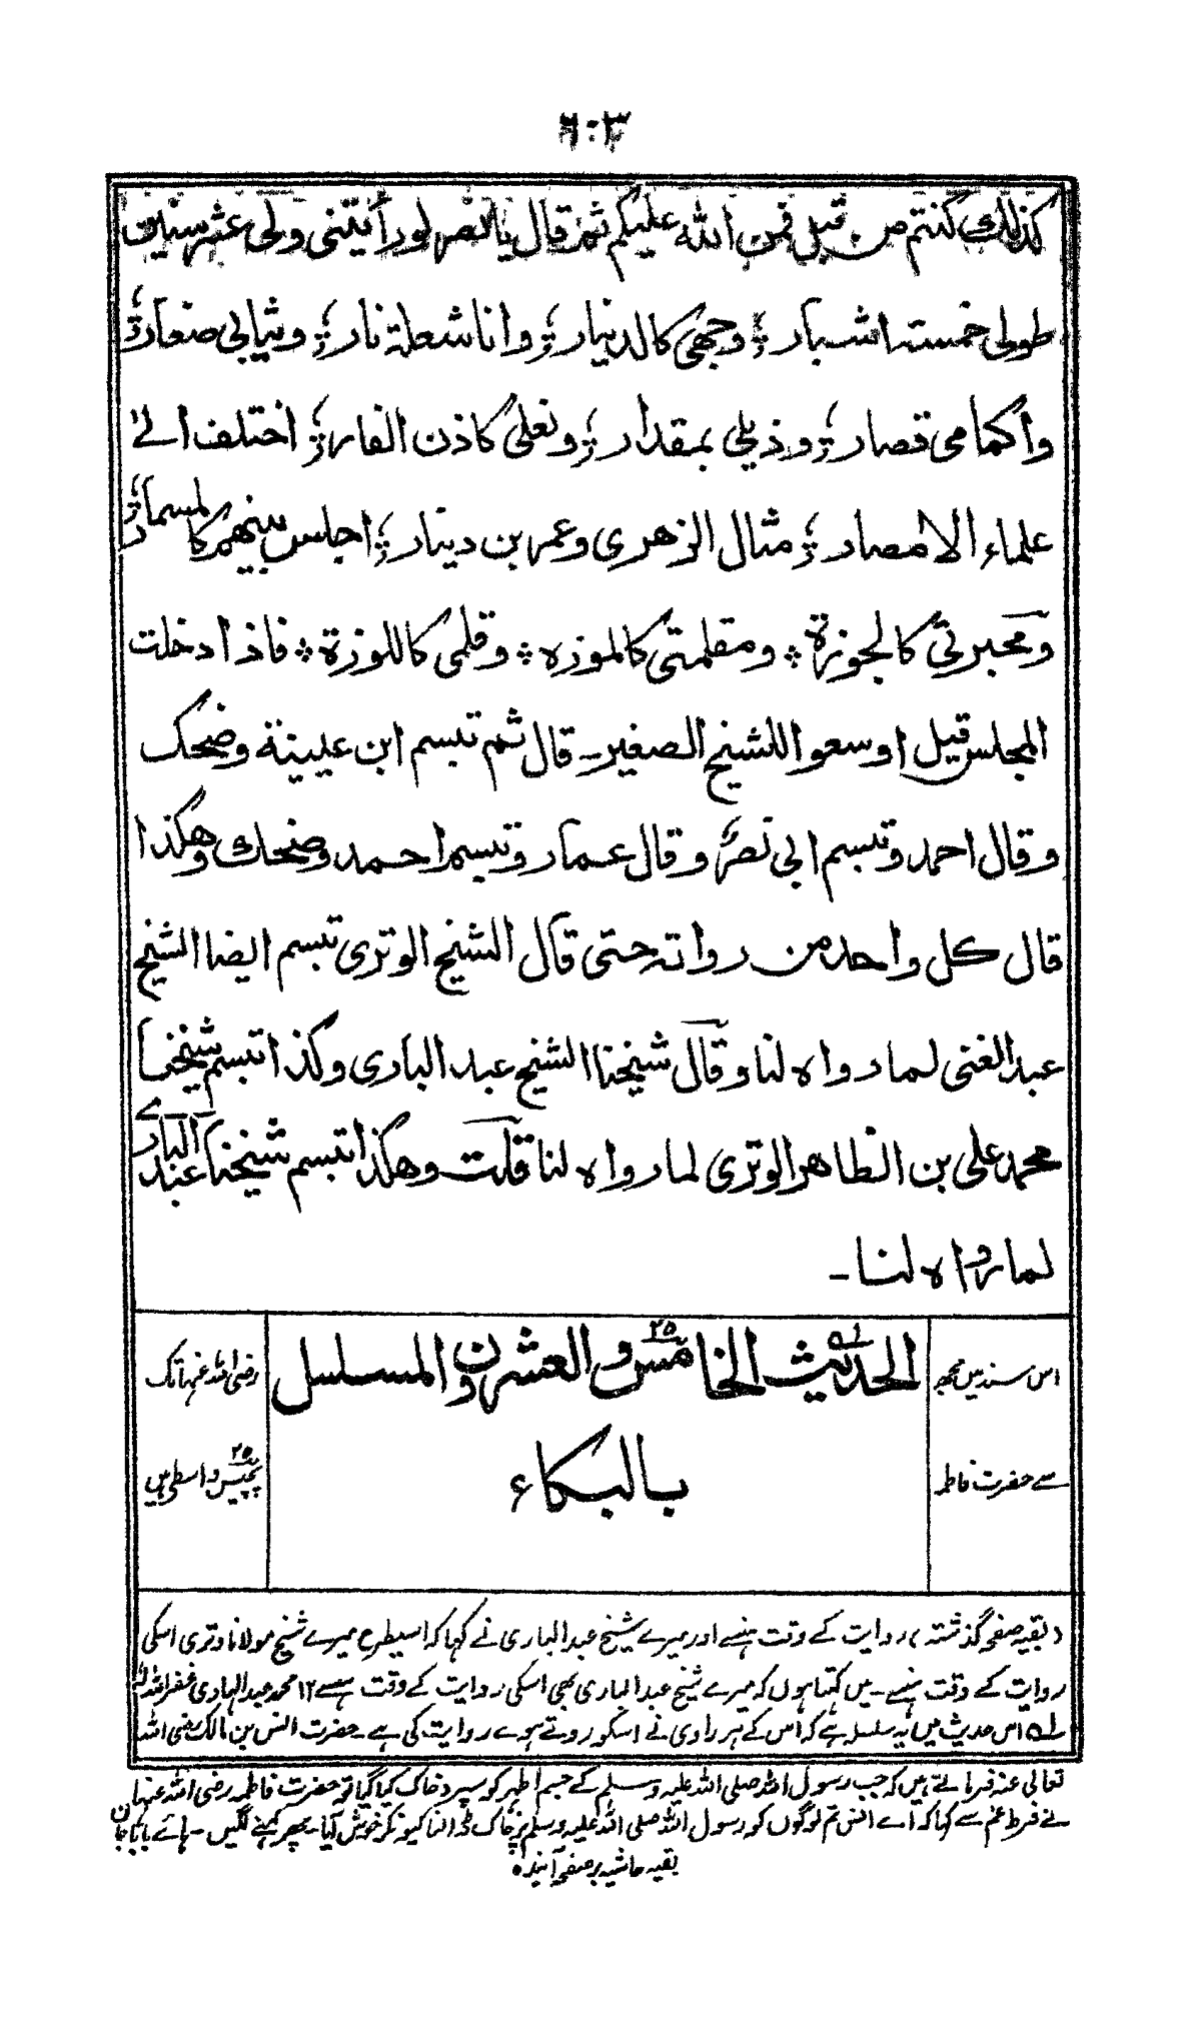 ٦٠٣
كذلك كنتم من قبل فمن الله عليكم ثم قال يا نصر لو رأيتنى ولى عشر سنين
طولى خمسة اشبار؛ وجهى كالدنيار؛ وانا شعلة نار؛ وثيابى صغار؛
واكمامى قصار؛ وذيلى بمقدار؛ ونعلى كاذن الفار؛ اختلف الى
علماء الامصار؛ مثال الزهرى وعمر بن دينار؛ اجلس بينهم كالمسمار؛
ومحبرتى كالجوزة ؞ ومقلمتى كالموزه ؞ وقلمى كاللوزة ؞ فاذا دخلت
المجلس قيل اوسعوا للشيخ الصغير۔ قال ثم تبسم ابن عيينة وضحك
وقال احمد وتبسم ابى نصر وقال عمار وتبسم احمد وضحك وهكذا
قال كل واحد من رواته حتى قال الشيخ الوترى تبسم ايضا الشيخ
عبد الغنى لما رواه لنا وقال شيخنا الشيخ عبد البارى وكذا تبسم شيخنا
محمد على بن الظاهر الوترى لما رواه لنا قلت وهكذا تبسم شيخنا عبد البارے
لما رواه لنا۔
اس سند میں مجھ
سے حضرت فاطمہ
الحديث الخامس ٢٥ والعشرون المسلسل
بالبكاء
رضی اللہ عنہا تک
پچیس ٢٥ واسطے ہیں
(بقیہ صفحہ گذشتہ) روایت کے وقت ہنسے اور میرے شیخ عبدالباری نے کہا کہ اسیطرح میرے شیخ مولانا وتری اسکی
روایت کے وقت ہنسے۔ میں کہتا ہوں کہ میرے شیخ عبدالباری بھی اسکی روایت کے وقت ہنسے ١٢ محمد عبدالہادی غفراللہ لہ
لہ اس حدیث میں یہ سلسلہ ہے کہ اس کے ہر راوی نے اسکو روتے ہوے روایت کی ہے۔ حضرت انس بن مالک رضی اللہ
تعالی عنہ فرماتے ہیں کہ جب رسول اللہ صلی اللہ علیہ وسلم کے جسم اطہر کو سپرد خاک کیا گیا تو حضرت فاطمہ رضی اللہ عنہا
نے فرط غم سے کہا کہ اے انس تم لوگوں کو رسول اللہ صلی اللہ علیہ وسلم پر خاک ڈالنا کیونکر خوش آیا۔ پھر کہنے لگیں۔ ہائے بابا جان
بقیہ حاشیہ بر صفحہ آیندہ